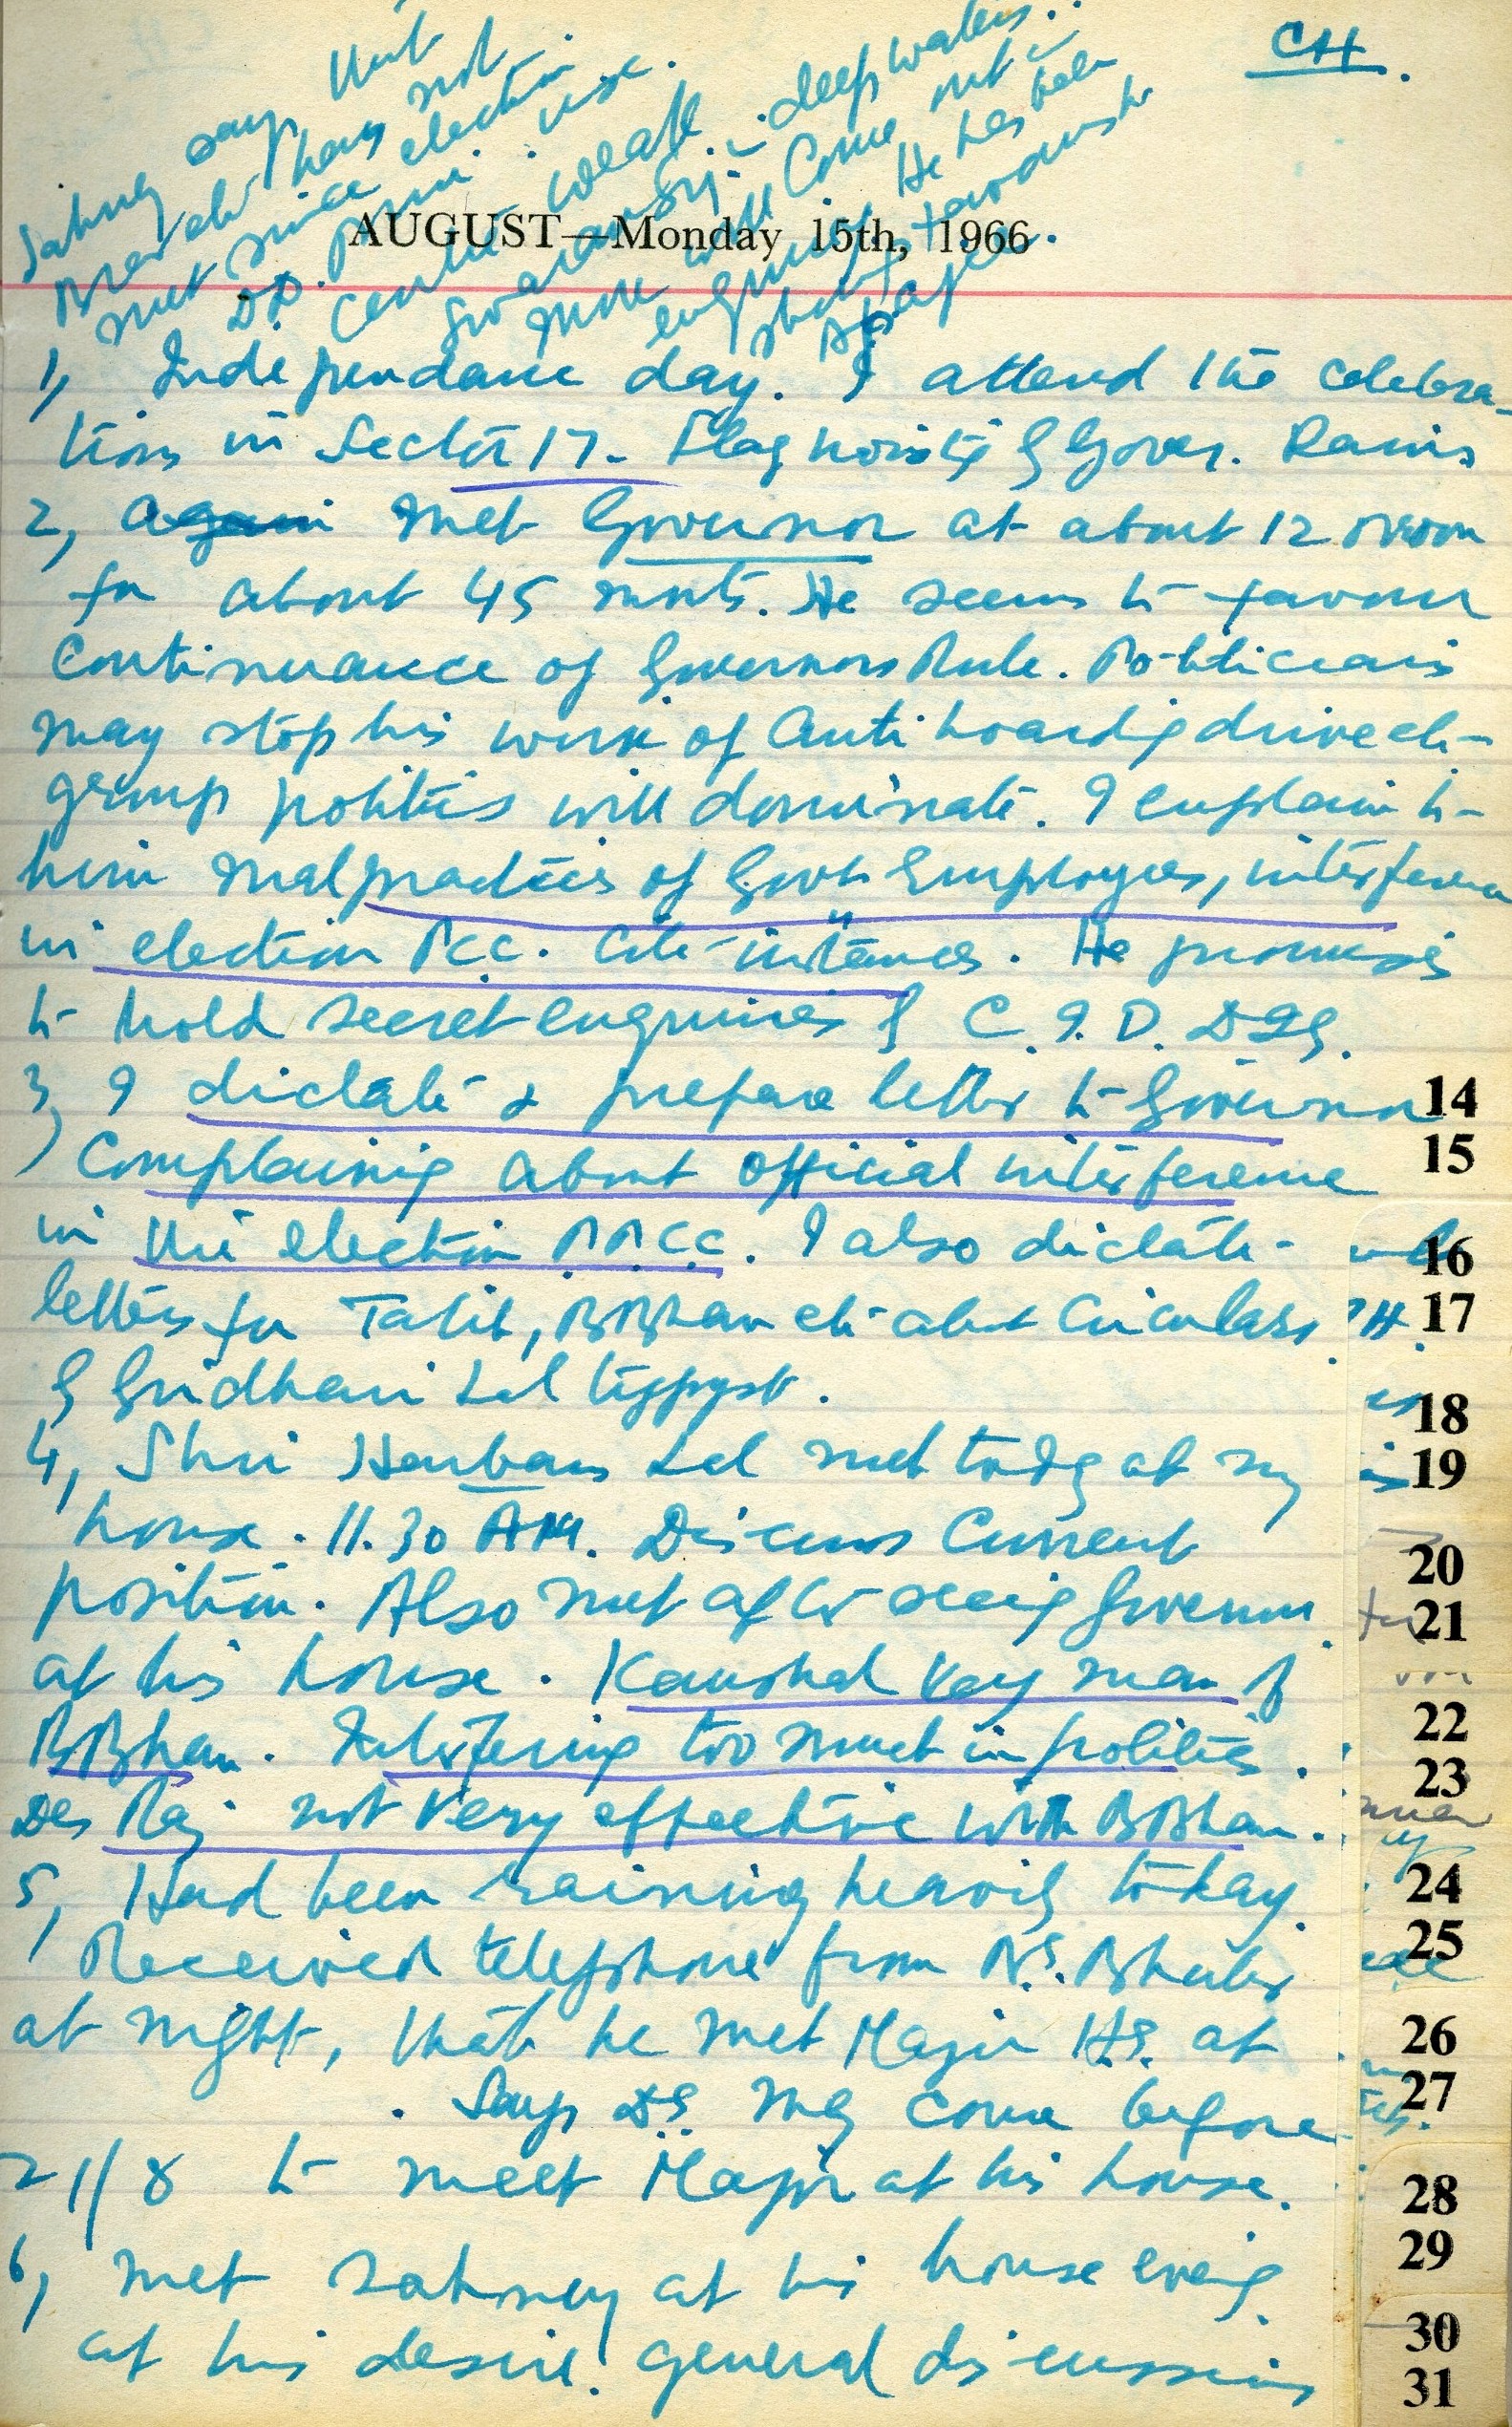 CH.
Sahney says that
Brar etc have not
met since election
D.D. Puri
Centre weak
deep waters..
more will come out in
enquiry. He has been
shown favours to
AUGUST—Monday 15th, 1966
1, Independance day. I attend the celebra-
tions in Sector 17. Flag hoistig by Gover. Rains
2, again met Governor at about 12 noon
for about 45 mnts. He seems to favour
continuance of Governors Rule. Politicians
may stop his work of Anti hoardig drive etc-
group politics will dominate. I explain to
him malpractices of Govt Employees, interference
in election P.C.C. Cite instances. He promises
to hold secret enquiries by C.I.D. DIG.
3, I dictate & prepare letter to Governor
complainig about official interference
in the election P.P.C.C. I also dictate
letters for Talib, BBhan etc about Circulars
by Gridhari Lal typpyst.
4, Shri Harbans Lal met today at my
house. 11.30 AM. Discuss Current
position. Also met after seeig Governor
at his house. Kaushal key man of
BBhan. Interfering too much in politics.
Des Raj not very effective with BBhan.
5, Had been raining heavily today
Received telephone from N.S. Bhatia
at night, that he met Major H.S. at
. Says D.S. may come before
21/8 to meet Major at his house.
6, met Sahney at his house eveig
at his desire. general discussions
14
15
16
17
18
19
20
21
22
23
24
25
26
27
28
29
30
31